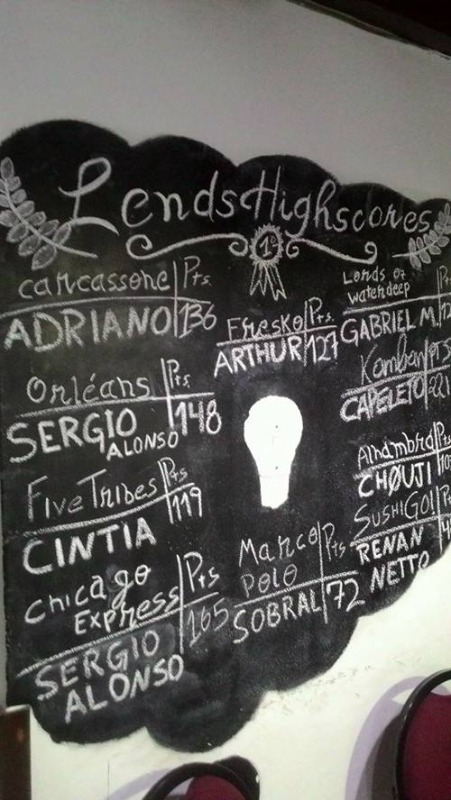 Lends Highscores
1º
Carcassone Pts.
ADRIANO 136
Orléans Pts
SERGIO ALONSO 148
Five Tribes Pts
CINTIA 119
Chicago
Express Pts
SERGIO 165
ALONSO
Fresko Pts.
ARTHUR 127
Marco
Polo Pts
SOBRAL 72
Lords of
waterdeep
GABRIEL M.
Kamban
CAPELETO 221
Alhambra
CHØUJI
SUSHIGO!
RENAN
NETTO